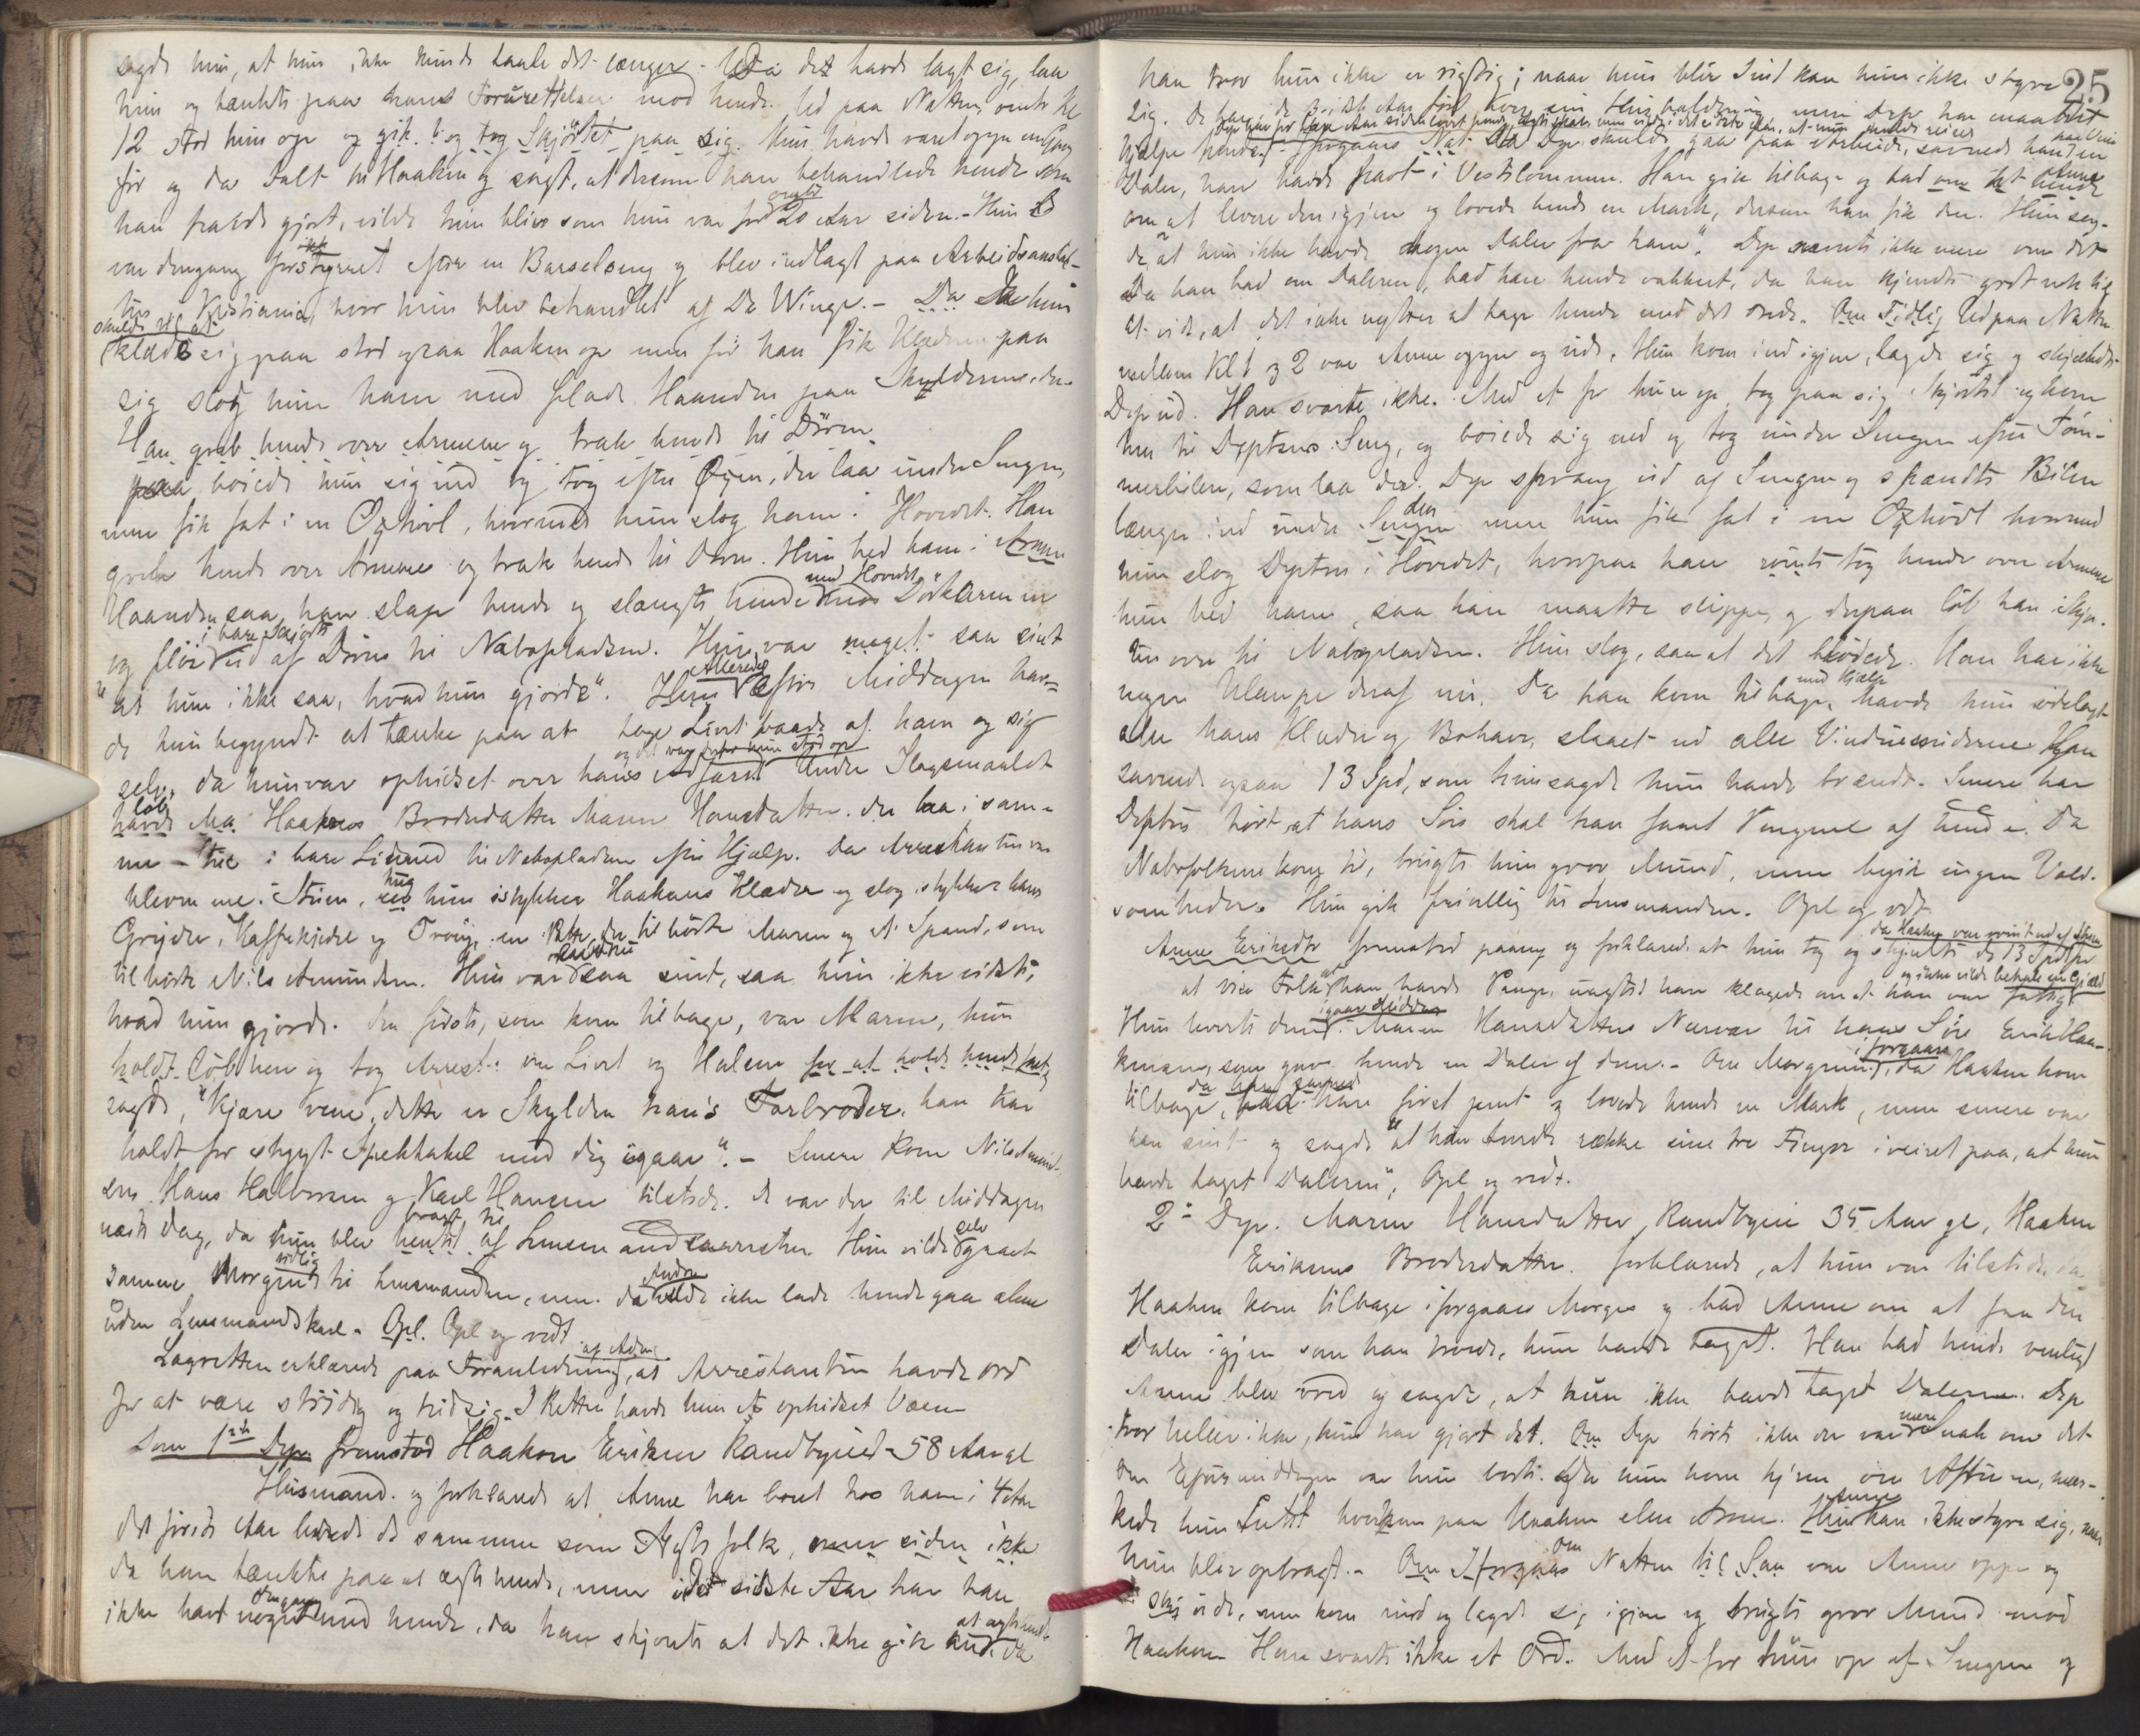 sagde hun, at hun ikke kunde taale det længer. Da de havde lagt sig, laa
hun og tænkte paa hans Forurettelser mod hende. Ud paa Natten, omtr Kl
12 stod hun op og gik og tog Skjørtet paa sig. Hun havde været oppe en Gang
før og da talt til Haaken og sagt, at dersom han behandlede hende som
han havde gjort, vilde hun blive som hun var for omtr 20 Aar siden. - Hun
var dengang forstyrret efter en Barselseng og blev indlagt paa Arbeidsanstal-
ten i Kristiania, hvor hun blev behandlet af Dr Winge. - Da hun
skulde til at
klæde sig paa stod ogsaa Haaken op men før han fik Klæderne paa
sig slog hun ham med flade Haanden paa Skuldrene,
Han greb hende over Armene og trak hende til Døren
bøiede hun sig ned og tog efter Øxen, der laa under Sengen,
men fik fat i en Øxhøvl, hvormed hun slog ham i Hovedet. Han
greb hende over Armene og trak hende til Døren. Hun bed ham i Armen
Haanden saa han slap hende og slængte hende med Hovedet mod Dørkarmen
i bare Skjorte
og fløi ud af Døren til Nabopladsen. Hun var meget saa sint
"at hun ikke saa, hvad hun gjorde". Allerede Efter Middagen hav-
de hun begyndt at tænke paa at tage Livet baade af ham og sig
selv, da hun var ophidset over hans Adfærd. Under Slagsmaalet
løb
havde Haakens Broderdatter Maren Hansdatter, der laa i sam-
me Stue i bare Linned til Nabopladsen efter Hjælp. Da Arrestantinden var
bleven ene i Stuen, hug hun istykker Haakens Klæder og slog istykker hans
Gryder, Kaffekjedel og Traug, en Bøtte, der tilhørte Maren og et Spand, som
tilhørte Nils Amundsen. Hun var saa sint, saa hun ikke vidste,
hvad hun gjorde. Den første, som kom tilbage, var Maren, hun
løb hen og tog Arrest. om Livet og Halsen for at holde hende fast, og
sagde, "kjære vene, dette er Skylden hans Farbroder, han har
holdt for stygt Spektakel med dig igaar". - Senere kom Nils Amund-
sen, Hans Halvorsen og Karl Hansen tilstede. De var der til Middagen
næste Dag, da hun blev bragt til Lensmandsarresten. Hun vilde selv gaaet
samme Morgen tidlig til Lensmanden, men de Andre vilde ikke lade hende gaa alene
uden Lensmandskarl. Opl. Opl og vedt
Lagretten erklærede paa Foranledning af Aktor, at Arrestantinden havde Ord
for at være stridig og hidsig. I Retten havde hun et ophidset Væsen
Som 1ste Dep. fremstod Haakon Eriksen Randbyeie 58 Aar gl
Husmand og forklarede at Anne har boet hos ham i 4 Aar
det første Aar levede de sammen som Ægtefolk, men siden ikke
da han tænkte paa at ægte hende, men i det sidste Aar har han
ikke havt noget med hende, da han skjønte at det ikke gik an at ægte hende. Da
25
han tror hun ikke er rigtig; naar hun blir Sind kan hun ikke styre
sig. De havde i det sidste Aar ført hver sin Husholdning men Dep har maattet
hjælpe hende. Iforgaars Nat Da Dep. skulde gaa paa Arbeide, savnede han en
Daler, han havde havt i Vestelommen. Han gik tilbage og bad Anne
om at levere den igjen og lovede hende en Mark, dersom han fik den. Hun sag-
de "at hun ikke havde nogen Daler fra ham". Dep nævnte ikke mere om det
Da han bad om Daleren, bad han hende vakkert, da han kjendte godt nok til
at vide, at det ikke nytter at tage hende med det onde. Ud paa Natten
mellem Kl 1 og 2 var Anne oppe og ude, Hun kom ind igjen, lagde sig og skjældte
Dep ud. Han svarte ikke. Med et for hun op, tog paa sig Skjørtet og kom
hen til Deptens Seng, og bøiede sig ned og tog under Sengen efter Tøm-
merbilen, som laa der. Dep sprang ud af Sengen og spændte Bilen
længer ind under Sengen men hun fik fat i en Øxhøvl hvormed
hun slog Depten i Hovedet, hvorpaa han tog hende over Armene
hun bed ham, saa han maatte slippe, og derpaa løb han i Skjor-
ten over til Nabopladsen. Hun slog, saa at det blødede. Han har ikke
nogen Ulempe deraf nu. Da han kom tilbage med Hjælp, havde hun ødelagt
alle hans Klæder og Bohave, slaaet ud alle Vinduesruderne. Han
savnede ogsaa 13 Spd, som hun sagde hun havde brændt. Senere har
Depten hørt at hans Søn skal have faaet Pengene af hende. Da
Nabofolkene kom til, brugte hun grov Mund, men begik ingen Vold-
somheder. Hun gik frivillig til Lensmanden. Opl og vedt
Anne Eriksdtr fremstod paany og forklarede at hun tog og skjulte de 13 Spd for
at vise Folk at han havde Penge, uagtet han klagede over at han var fattig
og ikke vilde betale en Gjæld
igaar Middag
Hun leverte dem i Maren Hansdatters Nærvær til hans Søn Erik Haa-
kensen, som gav hende en Daler af dem. - Om Morgenen iforgaars, da Haaken kom
tilbage, bad han først pent og lovede hende en Mark, men senere var
han sint og sagde "at han turde række sine tre Fingre iveiret paa, at hun
havde taget Daleren", Opl og vedt.
2. Dep. Maren Hansdatter, Randbyeie 35 Aar gl, Haaken
Eriksens Broderdatter. forklarede, at hun var tilstede, da
Haaken kom tilbage iforgaars Morges og bad Anne om at faa den
Daler igjen som han troede, hun havde taget. Han bad hende venligt
Anne blev vred og sagde, at hun ikke havde taget Daleren. Dep
tror heller ikke, hun har gjort det. Dep hørte ikke der var mere Snak om det
Om Eftermiddagen var hun borte. Da hun kom hjem om Aftenen, mær-
kede hun Intet hverken paa Haaken eller Anne. Anne kan ikke styre sig, naar
hun blir opbragt. - Om Natten til var Anne oppe og
ude, men kom ind og lagde sig igjen og brugte grov Mund mod
Haaken. Han svarte ikke et Ord. Med et for hun op af Sengen og